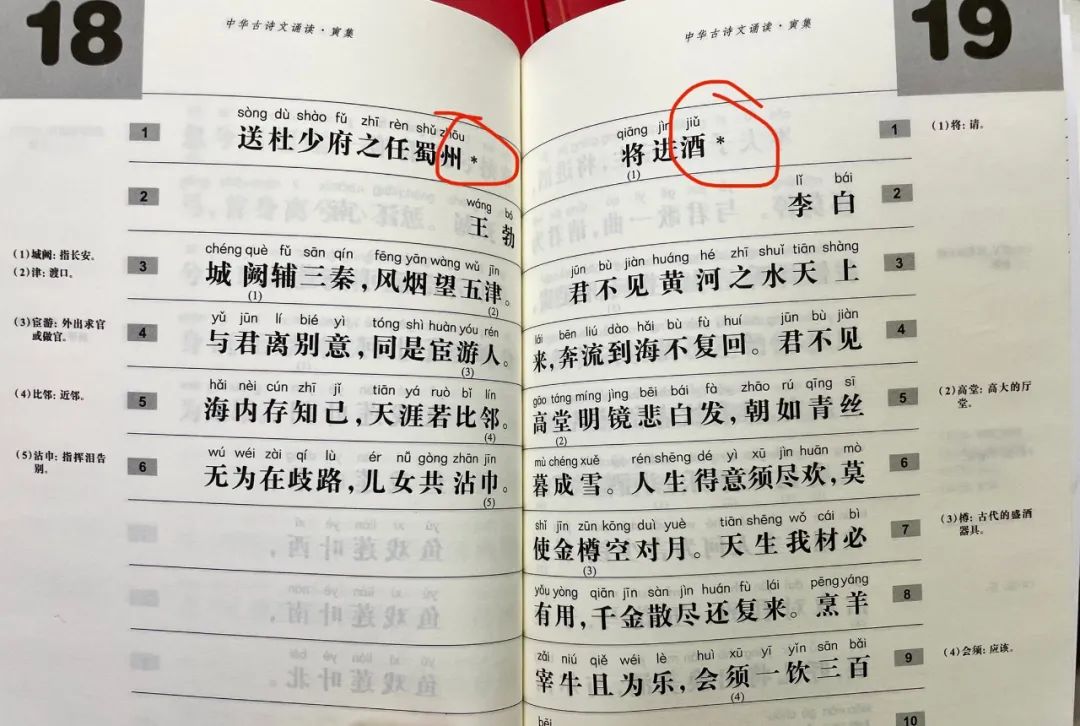 18
中华古诗文诵读·寅集
sòng dù shào fǔ zhī rèn shǔ zhōu
1 送杜少府之任蜀州*
wáng bó
2 王勃
chéng què fǔ sān qín fēng yān wàng wǔ jīn
(1)城阙：指长安。
(2)津：渡口。
3 城阙辅三秦，风烟望五津。
(1) (2)
yǔ jūn lí bié yì tóng shì huàn yóu rén
(3)宦游：外出求官或做官。
4 与君离别意，同是宦游人。
(3)
hǎi nèi cún zhī jǐ tiān yá ruò bǐ lín
(4)比邻：近邻。
5 海内存知己，天涯若比邻。
(4)
wú wéi zài qí lù ér nǚ gòng zhān jīn
(5)沾巾：指挥泪告别。
6 无为在歧路，儿女共沾巾。
(5)
19
中华古诗文诵读·寅集
qiāng jìn jiǔ
将进酒* 1 (1)将：请。
(1)
lǐ bái
李白 2
jūn bù jiàn huáng hé zhī shuǐ tiān shàng
君不见黄河之水天上 3
lái bēn liú dào hǎi bù fù huí jūn bù jiàn
来，奔流到海不复回。君不见 4
gāo táng míng jìng bēi bái fà zhāo rú qīng sī
高堂明镜悲白发，朝如青丝 5 (2)高堂：高大的厅堂。
(2)
mù chéng xuě rén shēng dé yì xū jìn huān mò
暮成雪。人生得意须尽欢，莫 6
shǐ jīn zūn kōng duì yuè tiān shēng wǒ cái bì
使金樽空对月。天生我材必 7 (3)樽：古代的盛酒器具。
(3)
yǒu yòng qiān jīn sàn jìn huán fù lái pēng yáng
有用，千金散尽还复来。烹羊 8
zǎi niú qiě wéi lè huì xū yī yǐn sān bǎi
宰牛且为乐，会须一饮三百 9 (4)会须：应该。
(4)
bēi
10